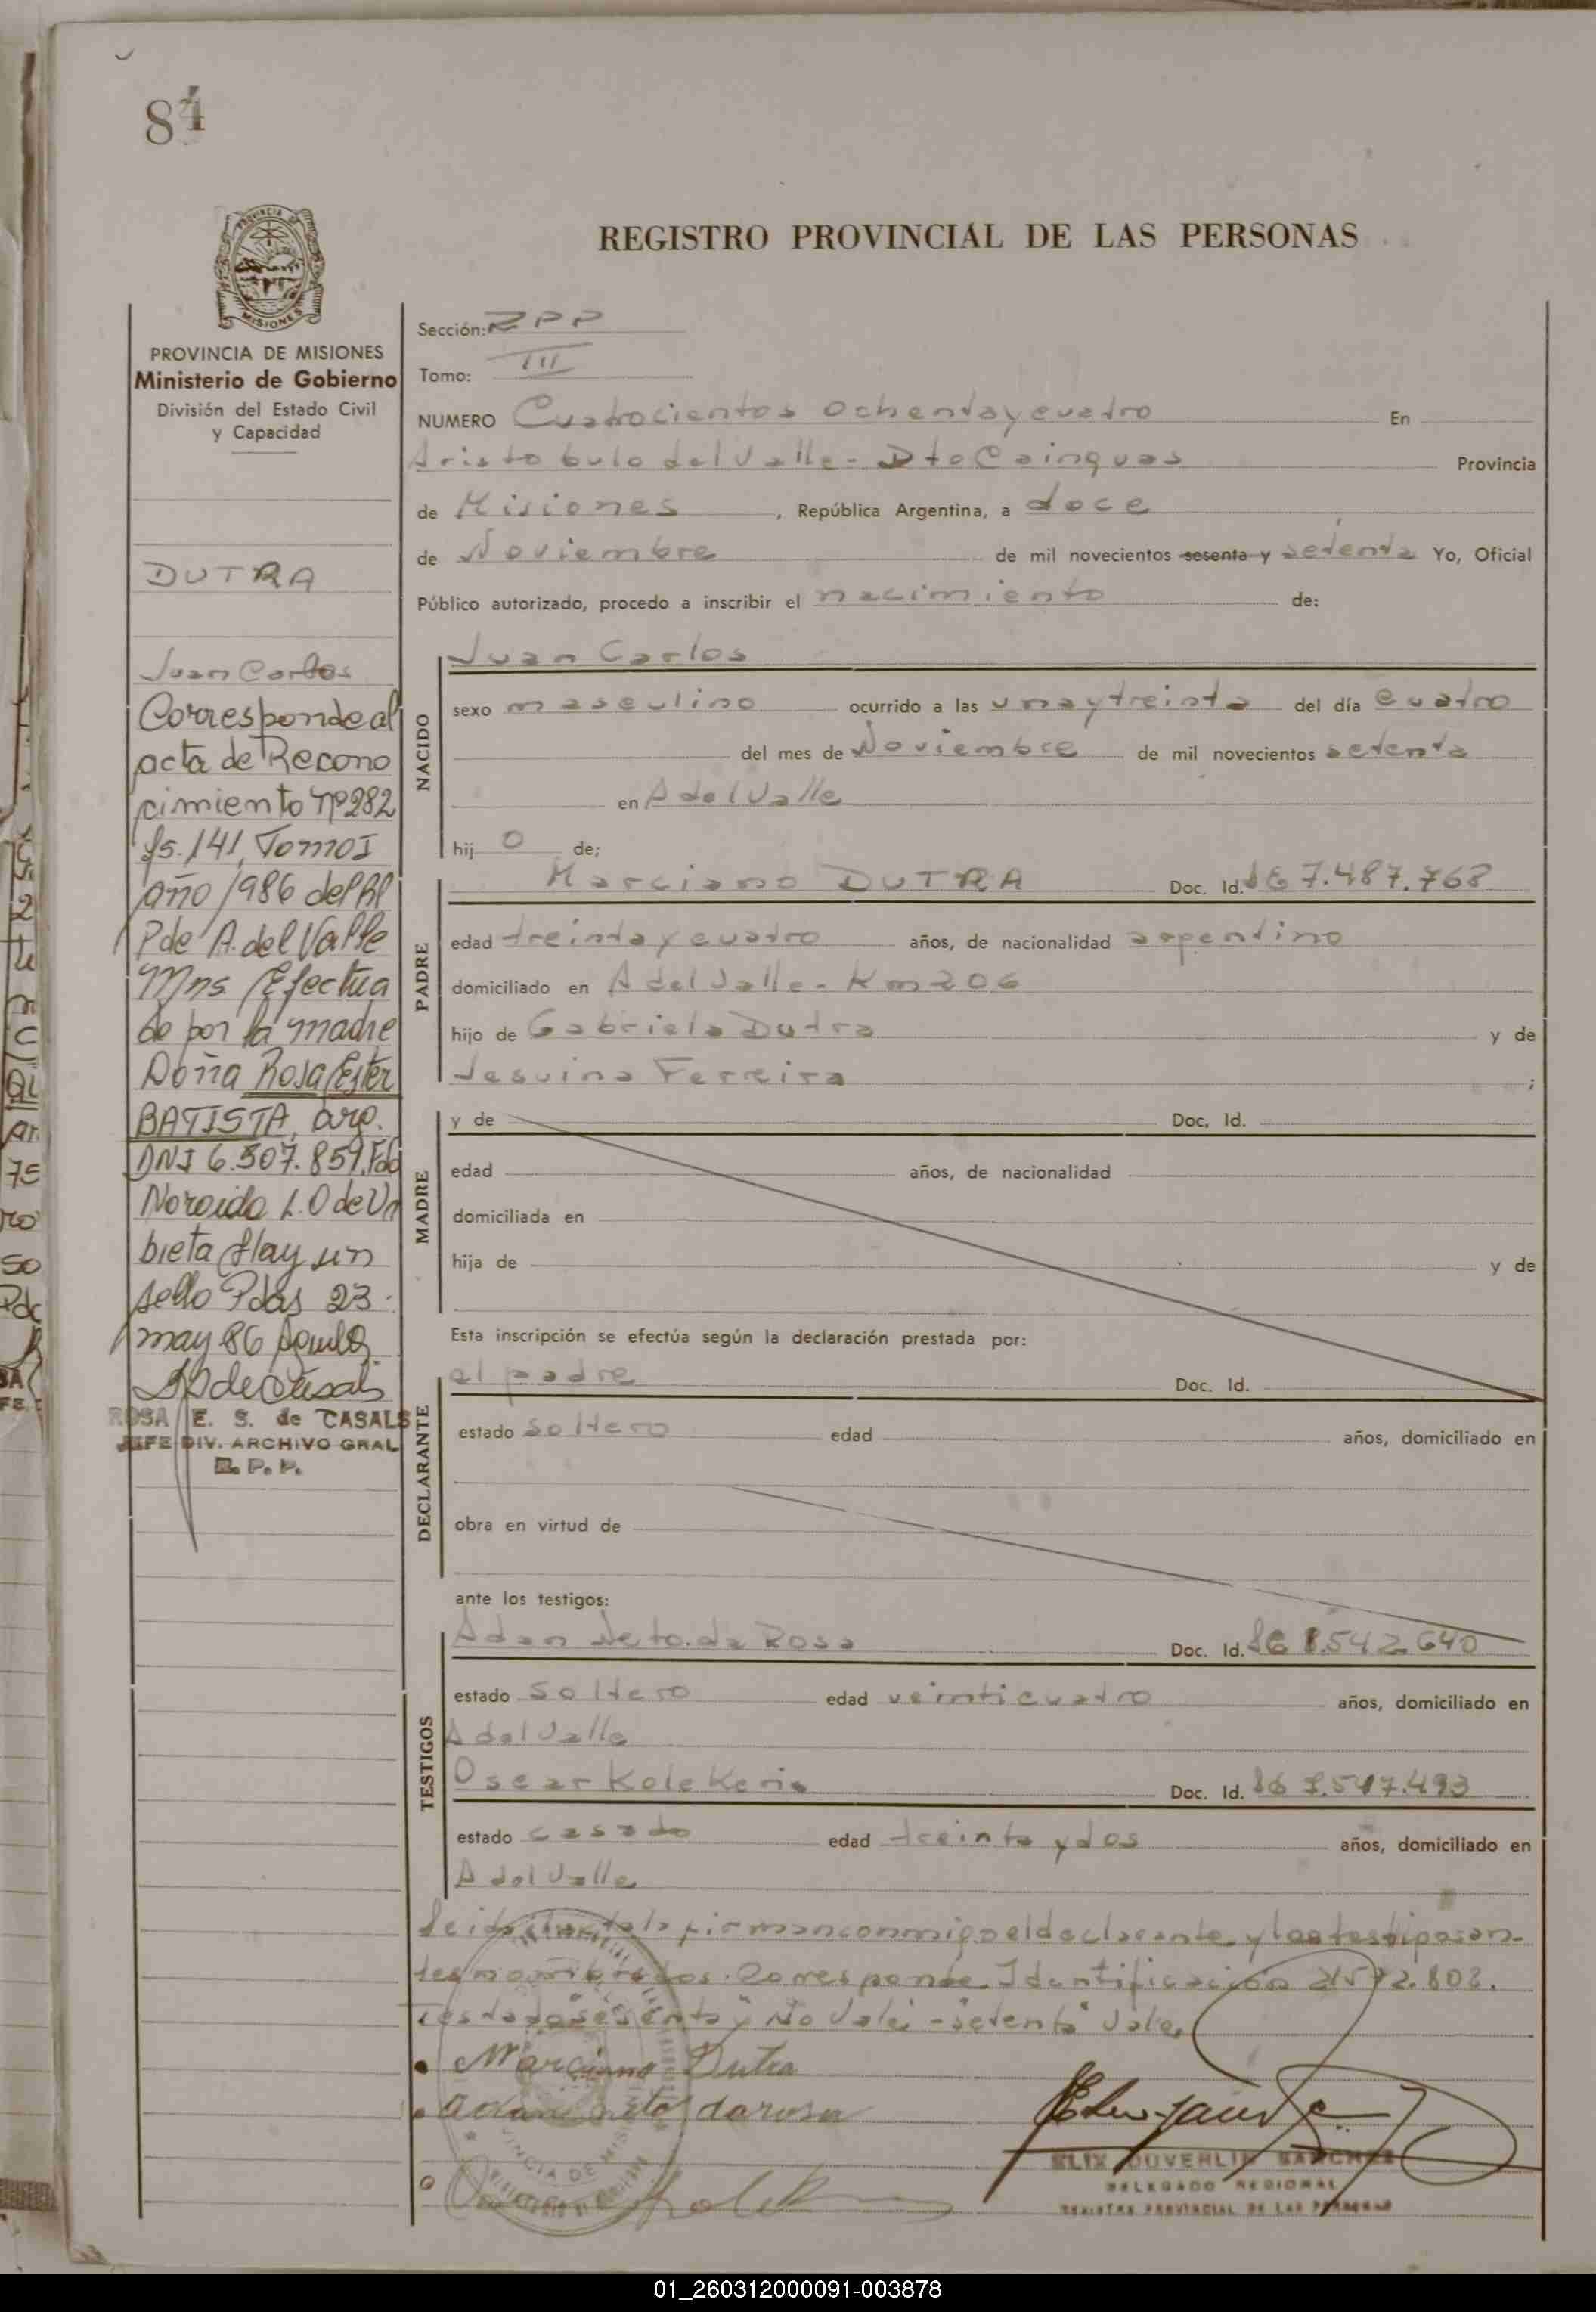 84
REGISTRO PROVINCIAL DE LAS PERSONAS
MISIONES
PROVINCIA DE MISIONES
Ministerio de Gobierno
División del Estado Civil
y Capacidad
DUTRA
Juan Carlos
Corresponde al
acta de Recono
cimiento Nº 282
fs. 141, Tomo I
año 1986 del
P de A. del Valle
Mns Efectua
do por la madre
Doña Rosa Ester
BATISTA, arg.
DNI 6.507.859. Fdo
L. O de Ur
bieta Hay un
sello Pdas 23
may 86
ROSA E. S. de CASALS
JEFE DIV. ARCHIVO GRAL
R. P. P.
Sección: RPP
Tomo: III
NUMERO Cuatrocientos ochenta y cuatro En
Aristobulo del Valle - Dto Cainguas Provincia
de Misiones, República Argentina, a doce
de Noviembre de mil novecientos sesenta y setenta Yo, Oficial
Público autorizado, procedo a inscribir el nacimiento de:
NACIDO
Juan Carlos
sexo masculino ocurrido a las una y treinta del día cuatro
del mes de Noviembre de mil novecientos setenta
en A del Valle
hij o de;
PADRE
Marciano DUTRA Doc. Id. 7.487.768
edad treinta y cuatro años, de nacionalidad argentino
domiciliado en A del Valle - Km 206
hijo de Gabriela Dutra y de
Jesuina Ferreira ;
MADRE
y de Doc. Id.
edad años, de nacionalidad
domiciliada en
hija de y de
Esta inscripción se efectúa según la declaración prestada por:
DECLARANTE
el padre Doc. Id.
estado soltero edad años, domiciliado en
obra en virtud de
ante los testigos:
TESTIGOS
Adan Neto da Rosa Doc. Id. 8.542.640
estado soltero edad veinticuatro años, domiciliado en
A del Valle
Oscar Doc. Id.
estado casado edad treinta y dos años, domiciliado en
A del Valle
Leida el acta la firman conmigo el declarante y los testigos an-
tes nombrados. Corresponde Identificación
Testado "sesenta y" No Vale - "setenta" Vale.
Marciano Dutra
Adan neto darosa
ELIX DUVERLIE SANCHEZ
DELEGADO REGIONAL
REGISTRO PROVINCIAL DE LAS PERSONAS
01_260312000091-003878